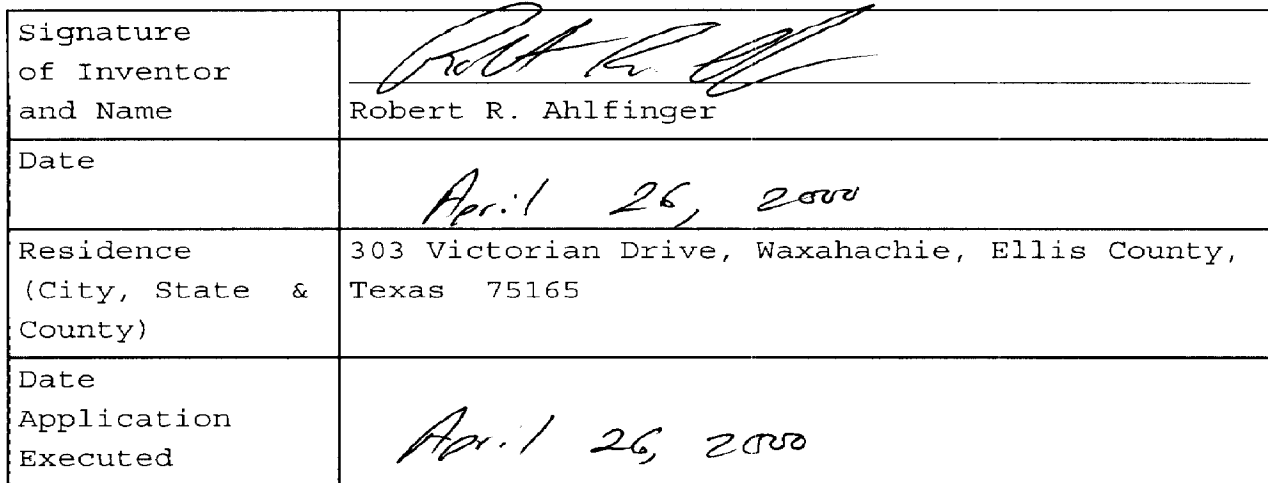 Signature
of Inventor
and Name
Robert R. Ahlfinger
Date
April 26, 2000
Residence
(City, State & County)
303 Victorian Drive, Waxahachie, Ellis County,
Texas 75165
Date
Application
Executed
April 26, 2000